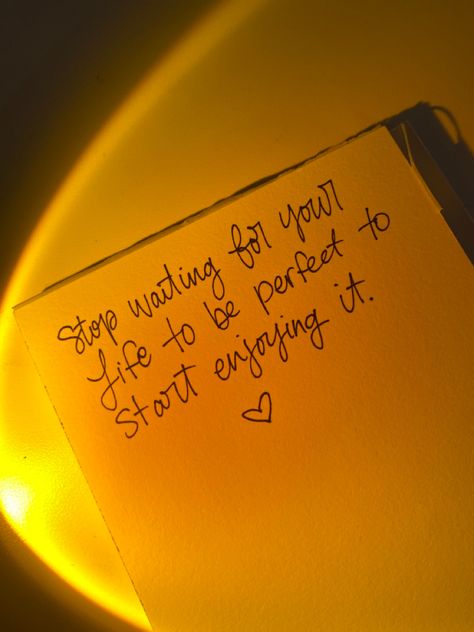 Stop waiting for your
life to be perfect to
start enjoying it.